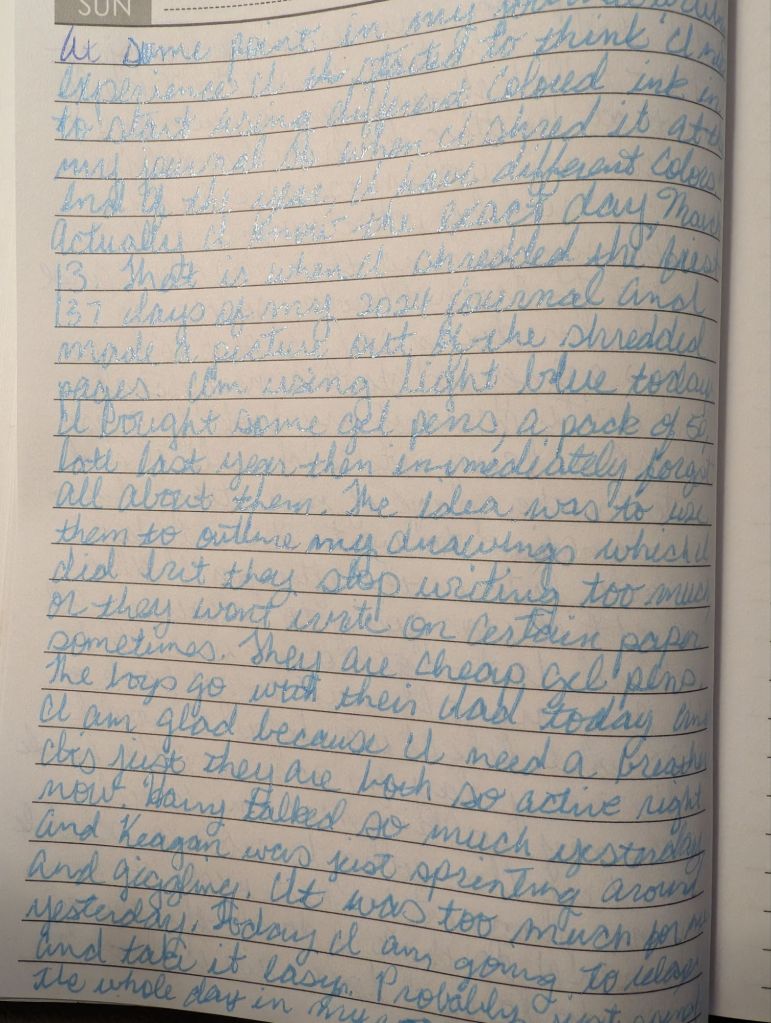 SUN
At some point in my
experience I started to think I
to start using different colored ink in
my journal so when I shred it at the
end of the year I have different colors
Actually I know the exact day
13. That is when I shredded the first
137 days of my 2024 journal and
made a picture out of the shredded
pages. I am using light blue today
I bought some gel pens, a pack of 50
late last year then immediately forgot
all about them. The idea was to use
them to outline my drawings which I
did but they stop writing too much
or they wont write on certain paper
sometimes. They are cheap gel pens.
The boys go with their dad today and
I am glad because I need a breather
just they are both so active right
now. Harry talked so much yesterday
and Keagan was just sprinting around
and giggling. It was too much for me
yesterday. Today I am going to relax
and take it easy. Probably just
the whole day in my